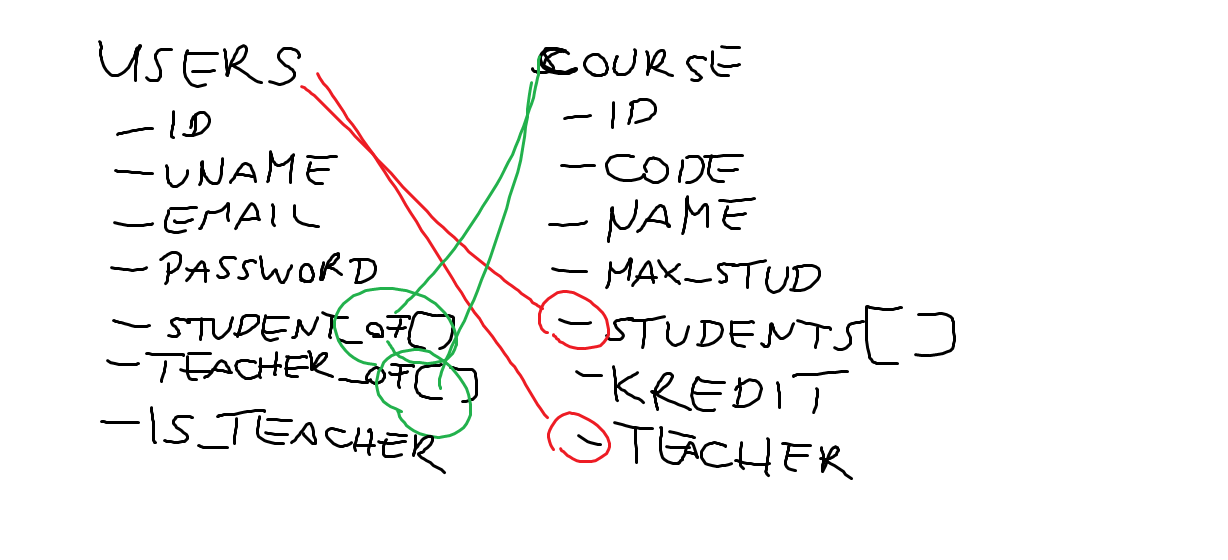 USERS
- ID
- UNAME
- EMAIL
- PASSWORD
- STUDENT_OF[]
- TEACHER_OF[]
- IS_TEACHER
COURSE
- ID
- CODE
- NAME
- MAX_STUD
- STUDENTS[]
- KREDIT
- TEACHER